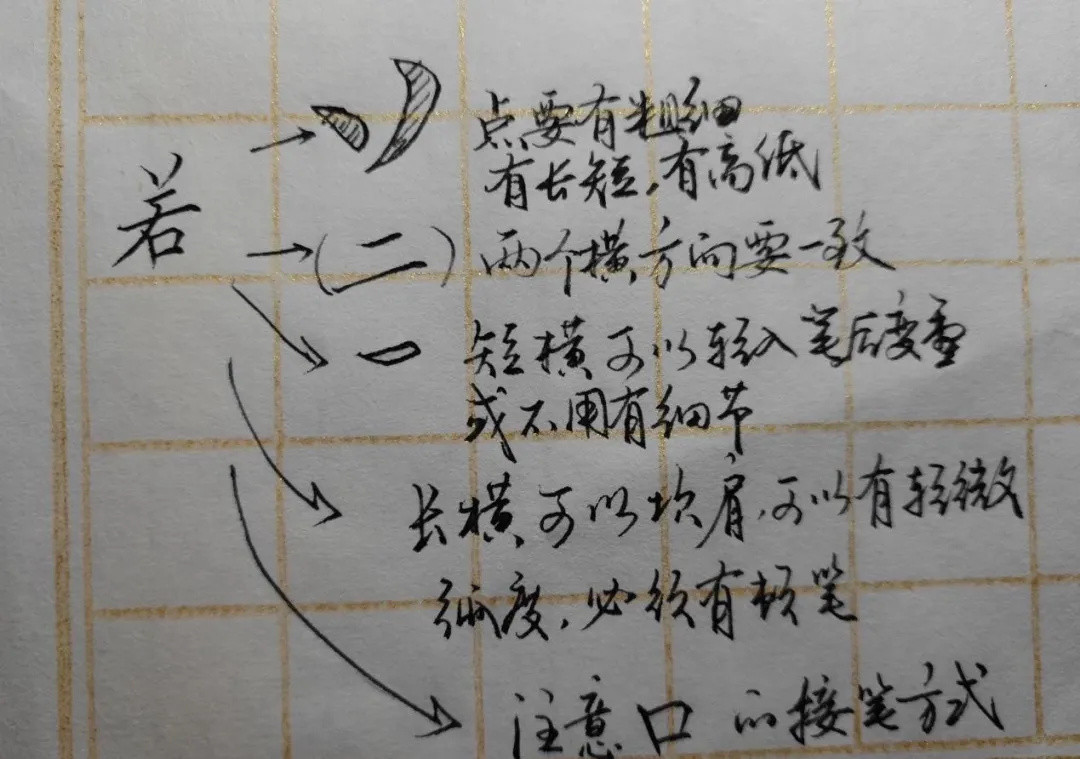 点要有粗细
有长短,有高低
若
(二)两个横,方向要一致
短横可以轻入笔后变重
或不用有细节
长横,可以坎肩,可以有轻微
弧度,必须有顿笔
注意口的接笔方式